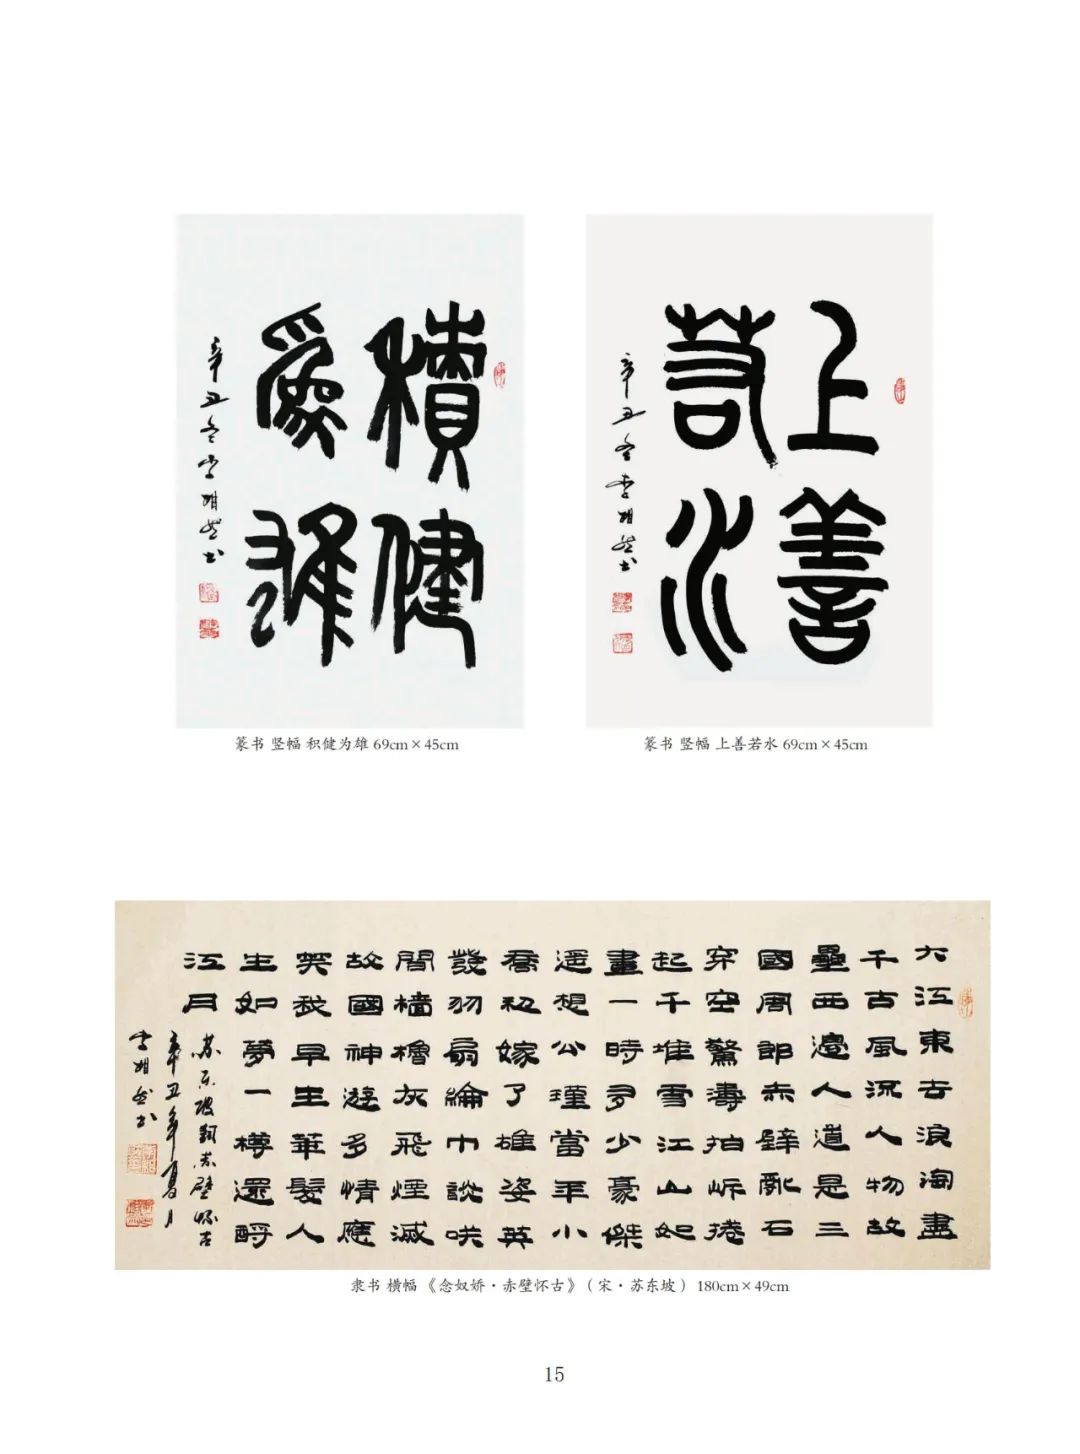 積健
為雄
辛丑冬李书
篆书 竖幅 积健为雄 69cm×45cm
上善
若水
辛丑冬李书
篆书 竖幅 上善若水 69cm×45cm
大江東去浪淘盡
千古風流人物故
壘西邊人道是三
國周郎赤壁亂石
穿空驚濤拍岸捲
起千堆雪江山如
畫一時多少豪傑
遥想公瑾當年小
喬初嫁了雄姿英
發羽扇綸巾談笑
間檣櫓灰飛煙滅
故國神遊多情應
笑我早生華髮人
生如夢一樽還酹
江月
苏东坡詞赤壁怀古
辛丑年夏月
李书
隶书 横幅 《念奴娇·赤壁怀古》（宋·苏东坡） 180cm×49cm
15